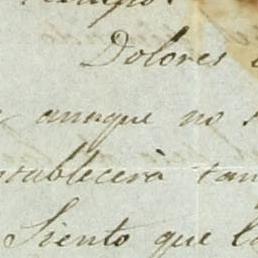 Dolores
anuque no
ablecerà tan
Siento que l